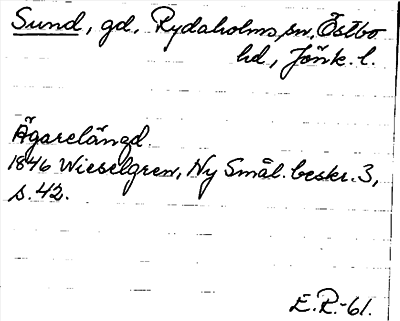 Sund, gd, Rydaholms, sn, Östbo
hd, Jönk. l.
Ägarelängd.
1846 Wieselgren, Ny Smål. beskr. 3,
s. 42.
E.R.-61.